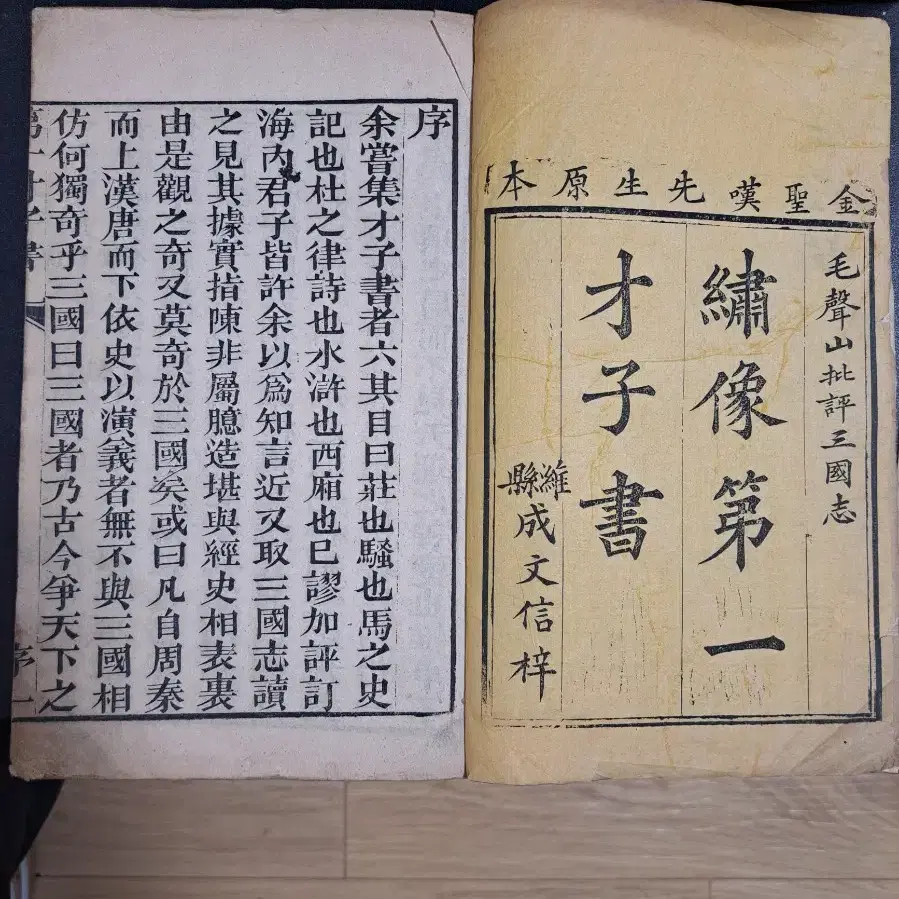 金聖嘆先生原本
毛聲山批評三國志
繡像第一
才子書
濰縣成文信梓
序
余嘗集才子書者六其目曰莊也騷也馬之史
記也杜之律詩也水滸也西廂也已謬加評訂
海內君子皆許余以爲知言近又取三國志讀
之見其據實指陳非屬臆造堪與經史相表裏
由是觀之奇又莫奇於三國矣或曰凡自周秦
而上漢唐而下依史以演義者無不與三國相
仿何獨奇乎三國曰三國者乃古今爭天下之
第一才子書 序 一